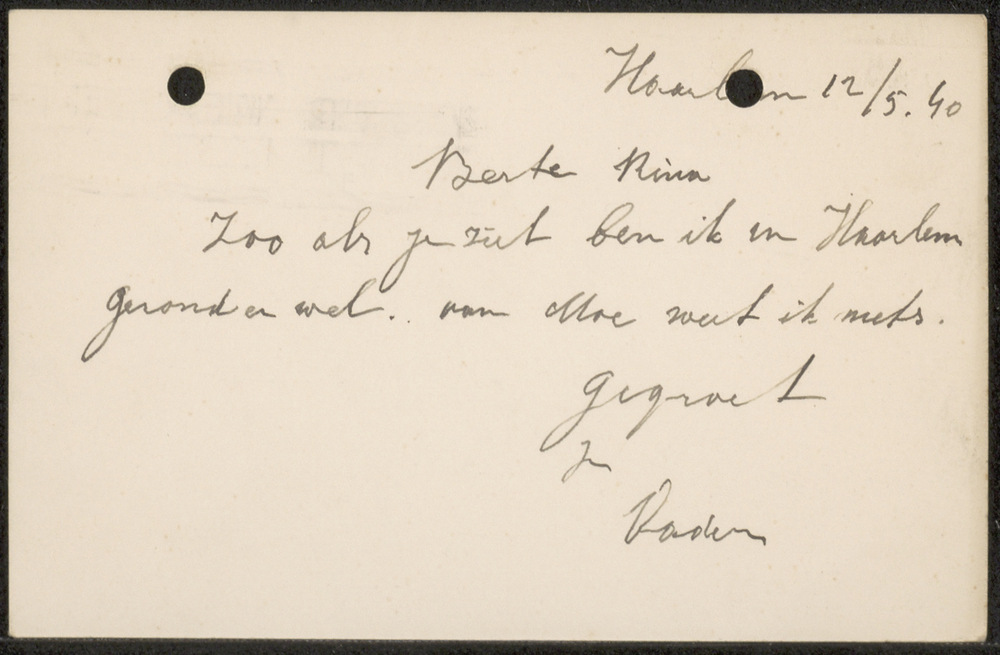 Haarlem 12/5. 40
Beste Rina
Zoo als je ziet ben ik in Haarlem
gezond en wel. van Moe weet ik niets.
gegroet
Je
Vader